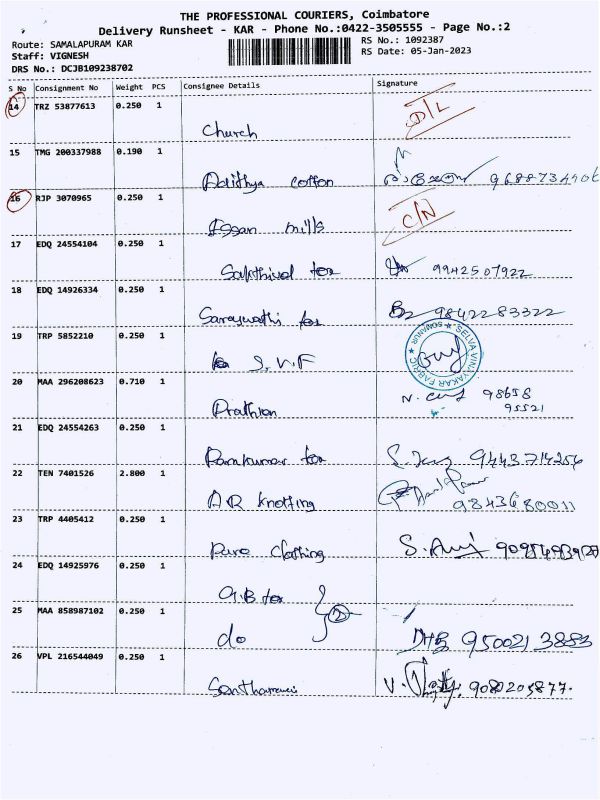 THE PROFESSIONAL COURIERS, Coimbatore
Delivery Runsheet - KAR - Phone No.:0422-3505555 - Page No.:2
Route: SAMALAPURAM KAR
RS No.: 1092387
Staff: VIGNESH
RS Date: 05-Jan-2023
DRS No.: DCJB109238702
S No Consignment No Weight PCS Consignee Details Signature
14 TRZ 53877613 0.250 1
D/L
Church
15 TMG 200337988 0.190 1
Adithya cotton
16 RJP 3070965 0.250 1
C/N
Essan mills
17 EDQ 24554104 0.250 1
Sakthivel tex 9942507922
18 EDQ 14926334 0.250 1
Saraswathi tex 9842283322
19 TRP 5852210 0.250 1
S.V.F
SELVA VINAYAKAR FABRIC ★ SOMANUR ★
20 MAA 296208623 0.710 1
98658
95521
21 EDQ 24554263 0.250 1
Ramkumar tex 9443714256
22 TEN 7401526 2.800 1
AR knotting 9843680011
23 TRP 4405412 0.250 1
Pure clothing
24 EDQ 14925976 0.250 1
G.B tex
2
25 MAA 858987102 0.250 1
do 9500213883
26 VPL 216544049 0.250 1
9080205877